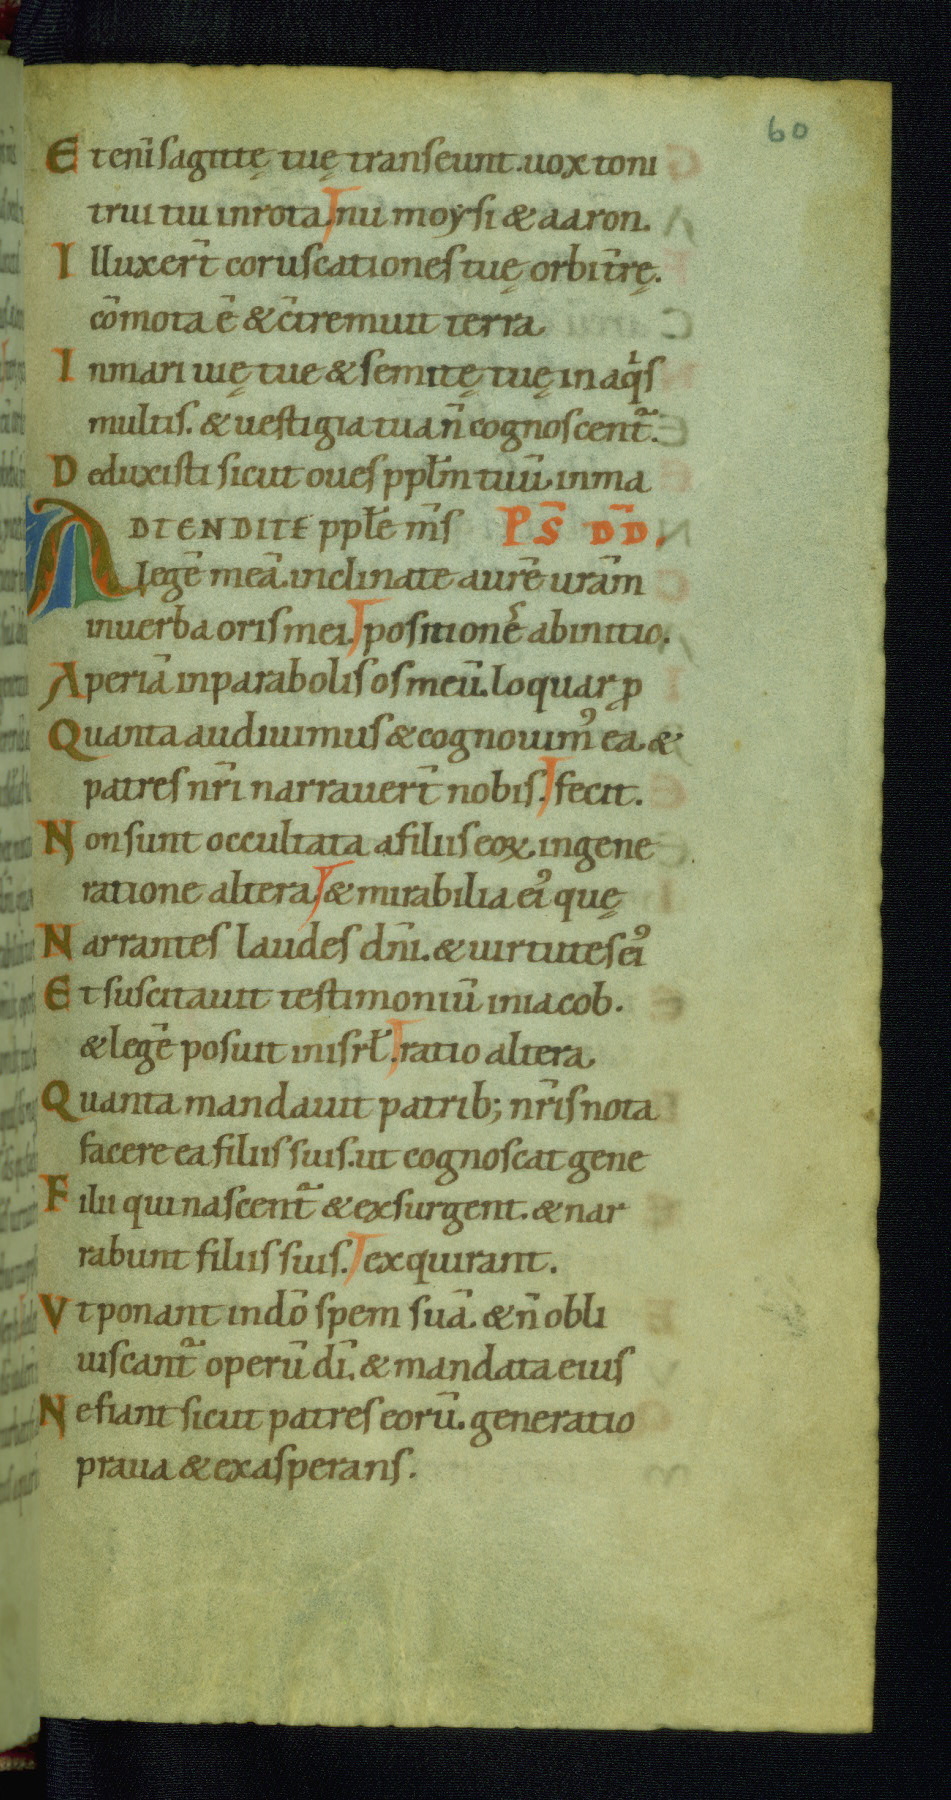 60
Eteni̅ sagittę tuę transeunt. uox toni
trui tui in rota. nu moysi & aaron.
Illuxer̅t coruscationes tuę orbi t̅rę.
co̅mota e̅ & c̅tremuit terra
In mari uię tue & semitę tuę in aqͥs
multis. & uestigia tua n̅ cognoscent̃.
Deduxisti sicut oues ppl̅m tuu̅. in ma
ADTENDITE pple̅ m̅s PS̅ DD̅.
lege̅ mea̅. inclinate aure̅ ura̅m
in uerba oris mei. positione̅s ab initio.
Aperia̅ in parabolis os meu̅. loquar ꝓ
Quanta audiuimus & cognouimꝰ ea. &
patres nr̅i narrauer̅t nobis. fecit.
Non sunt occultata a filiis eoꝝ. in gene
ratione altera. & mirabilia eiꝰ quę
Narrantes laudes dn̅i. & uirtutes eiꝰ
Et suscitauit testimoniu̅ in iacob.
& lege̅ posuit in isrł. ratio altera
Quanta mandauit patrib; nr̅is nota
facere ea filiis suis. ut cognoscat gene
Filii qui nascent̃ & exsurgent. & nar
rabunt filiis suis. exquirant.
Vt ponant in do̅ spem sua̅. & n̅ obli
uiscant̃ operu̅ di̅. & mandata eius
Ne fiant sicut patres eoru̅. generatio
praua & exasperans.